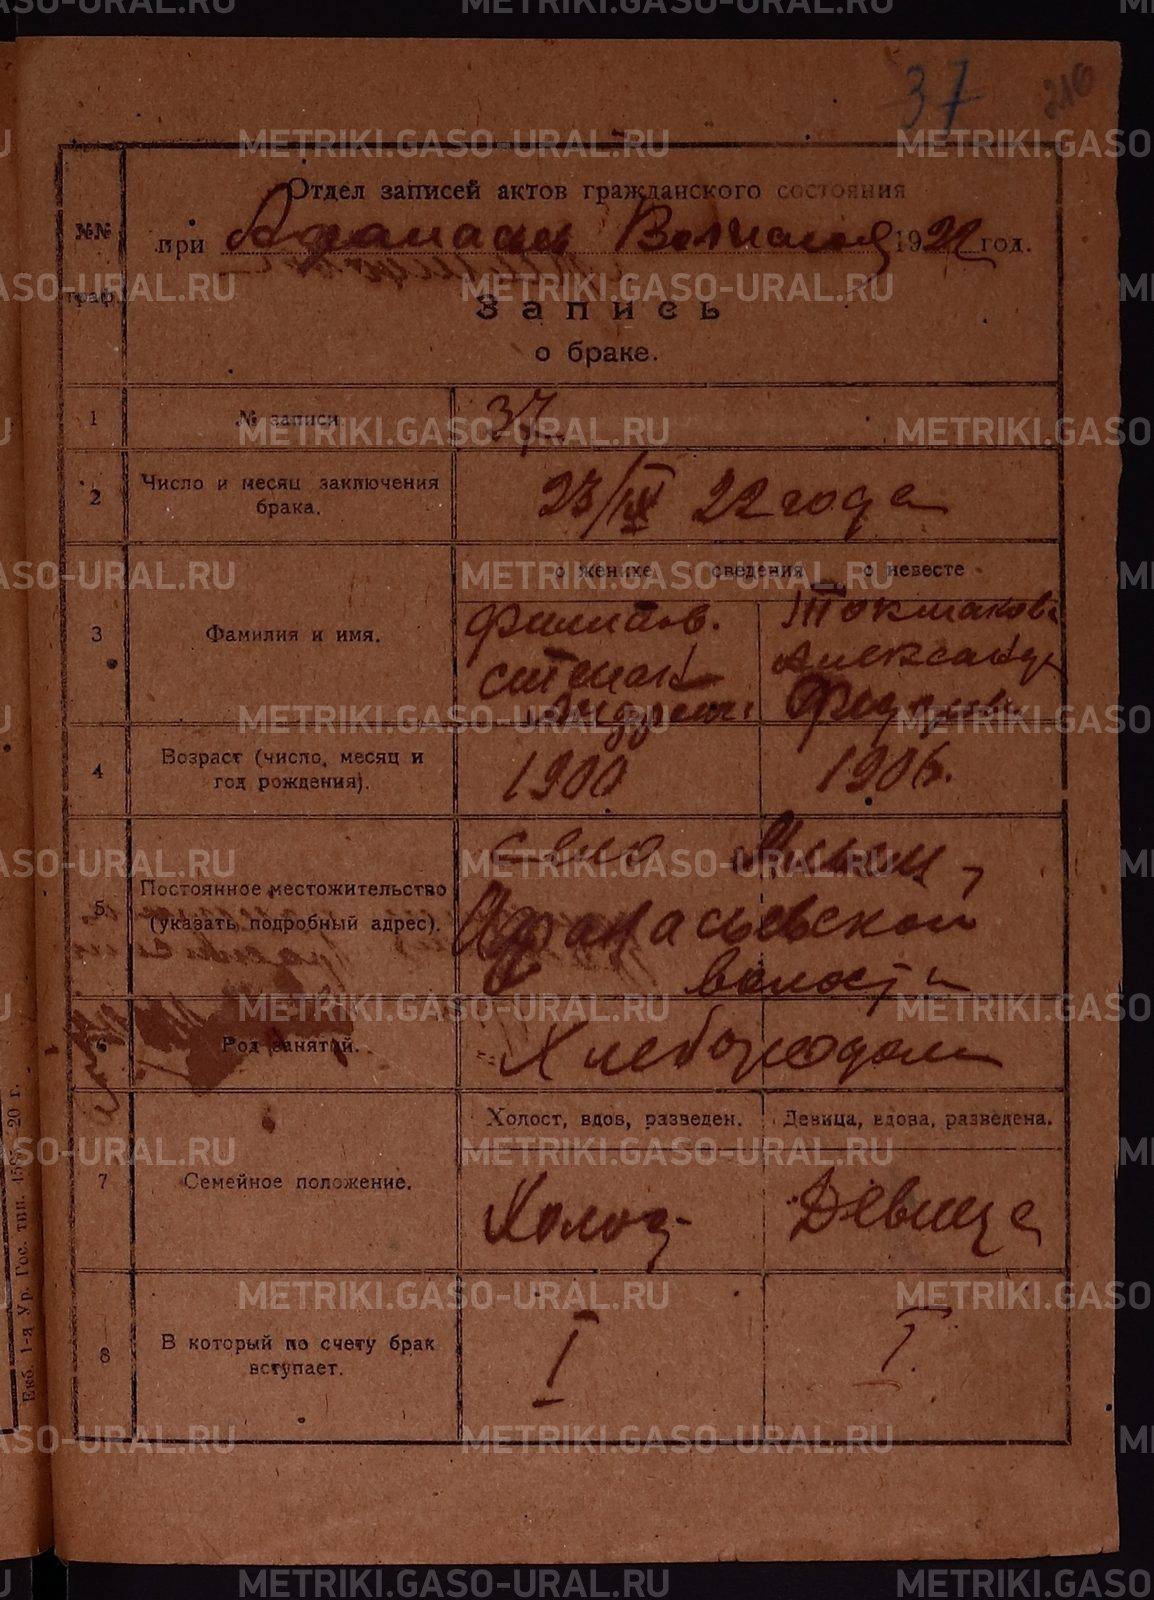 37
216
№№ граф.
Отдел записей актов гражданского состояния
при 1922 год.
Запись
о браке.
1 № записи 37
2 Число и месяц заключения брака. 23/IX 22 года
о женихе сведения о невесте
3 Фамилия и имя.
Филипов. Токмакова
Степан Александра
Андреев. Федоровн
4 Возраст (число, месяц и год рождения). 1900 1906.
5 Постоянное местожительство (указать подробный адрес).
село
Афанасьевской
волости
6 Род занятий. Хлебородом
Холост, вдов, разведен. Девица, вдова, разведена.
7 Семейное положение. Холост Девица
8 В который по счету брак вступает. I I
Екб. 1-я Ур. Гос. тип. 20 г.
METRIKI.GASO-URAL.RU